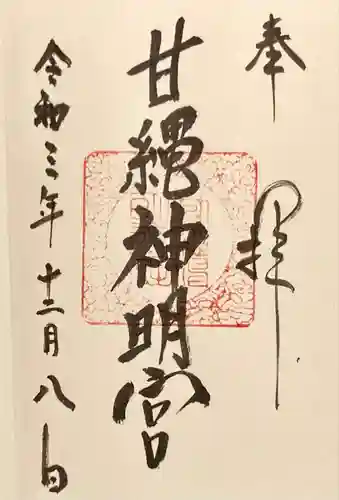 奉拝
甘縄神明宮
令和三年十二月八日